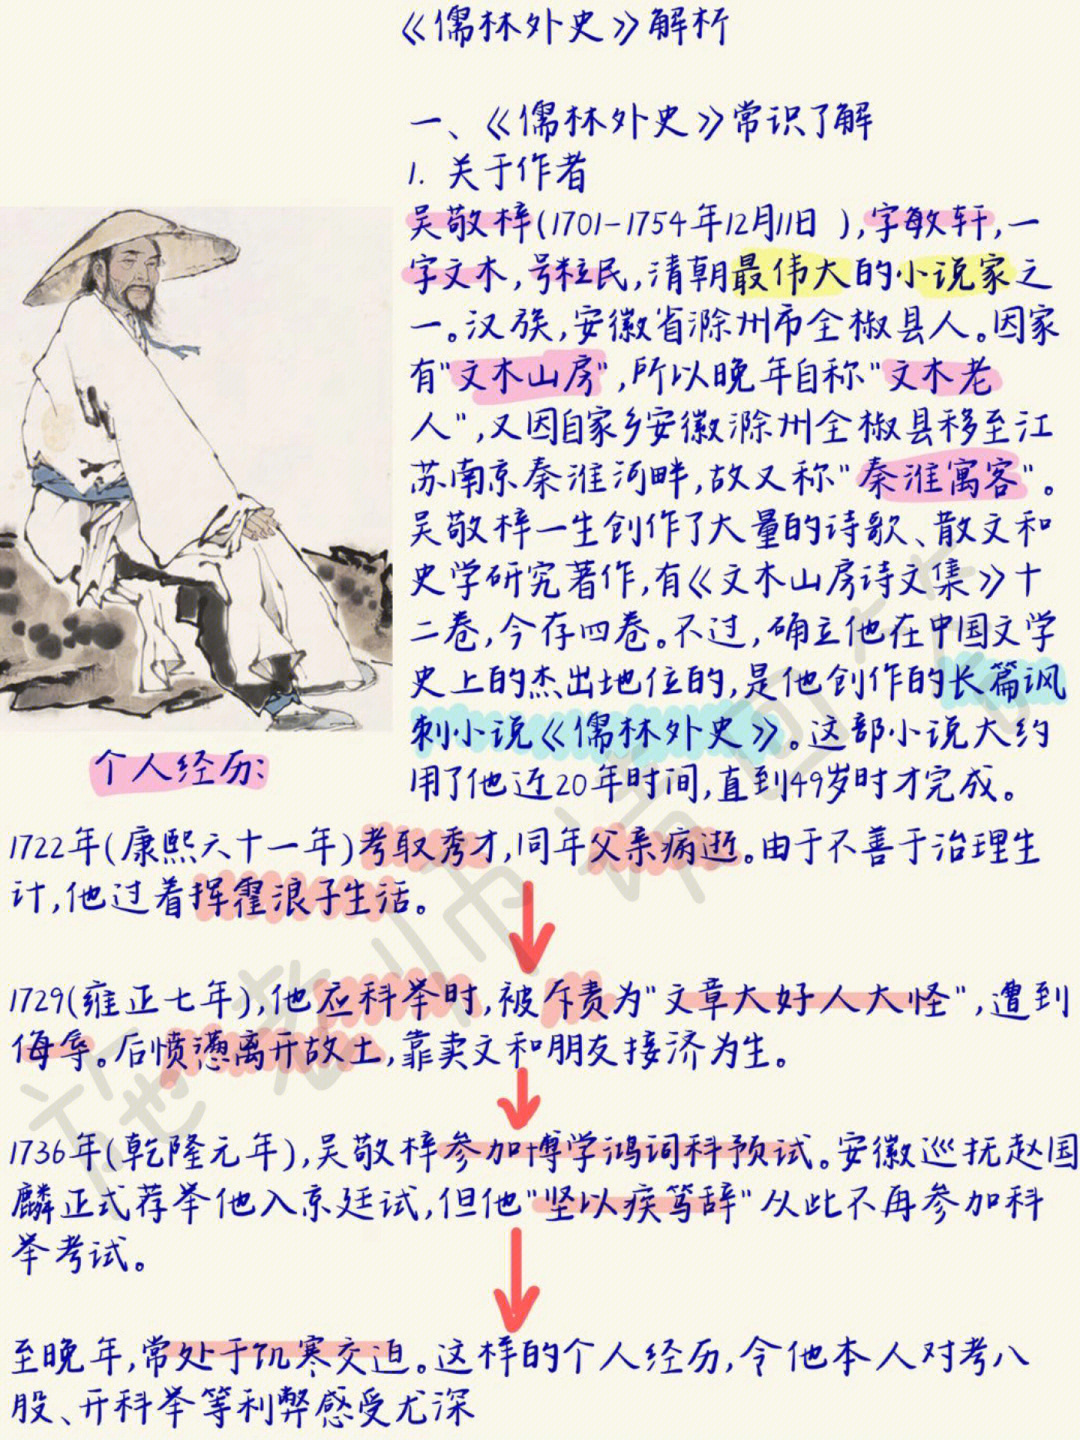 《儒林外史》解析
一、《儒林外史》常识了解
1. 关于作者
吴敬梓(1701-1754年12月11日 ),字敏轩,一
字文木,号粒民,清朝最伟大的小说家之
一。汉族,安徽省滁州市全椒县人。因家
有"文木山房",所以晚年自称"文木老
人",又因自家乡安徽滁州全椒县移至江
苏南京秦淮河畔,故又称"秦淮寓客"。
吴敬梓一生创作了大量的诗歌、散文和
史学研究著作,有《文木山房诗文集》十
二卷,今存四卷。不过,确立他在中国文学
史上的杰出地位的,是他创作的长篇讽
刺小说《儒林外史》。这部小说大约
用了他近20年时间,直到49岁时才完成。
个人经历:
1722年(康熙六十一年)考取秀才,同年父亲病逝。由于不善于治理生
计,他过着挥霍浪子生活。
1729(雍正七年),他应科举时,被斥责为"文章大好人大怪",遭到
侮辱。后愤懑离开故土,靠卖文和朋友接济为生。
1736年(乾隆元年),吴敬梓参加博学鸿词科预试。安徽巡抚赵国
麟正式荐举他入京廷试,但他"坚以疾笃辞"从此不再参加科
举考试。
至晚年,常处于饥寒交迫。这样的个人经历,令他本人对考八
股、开科举等利弊感受尤深
施老师请回答